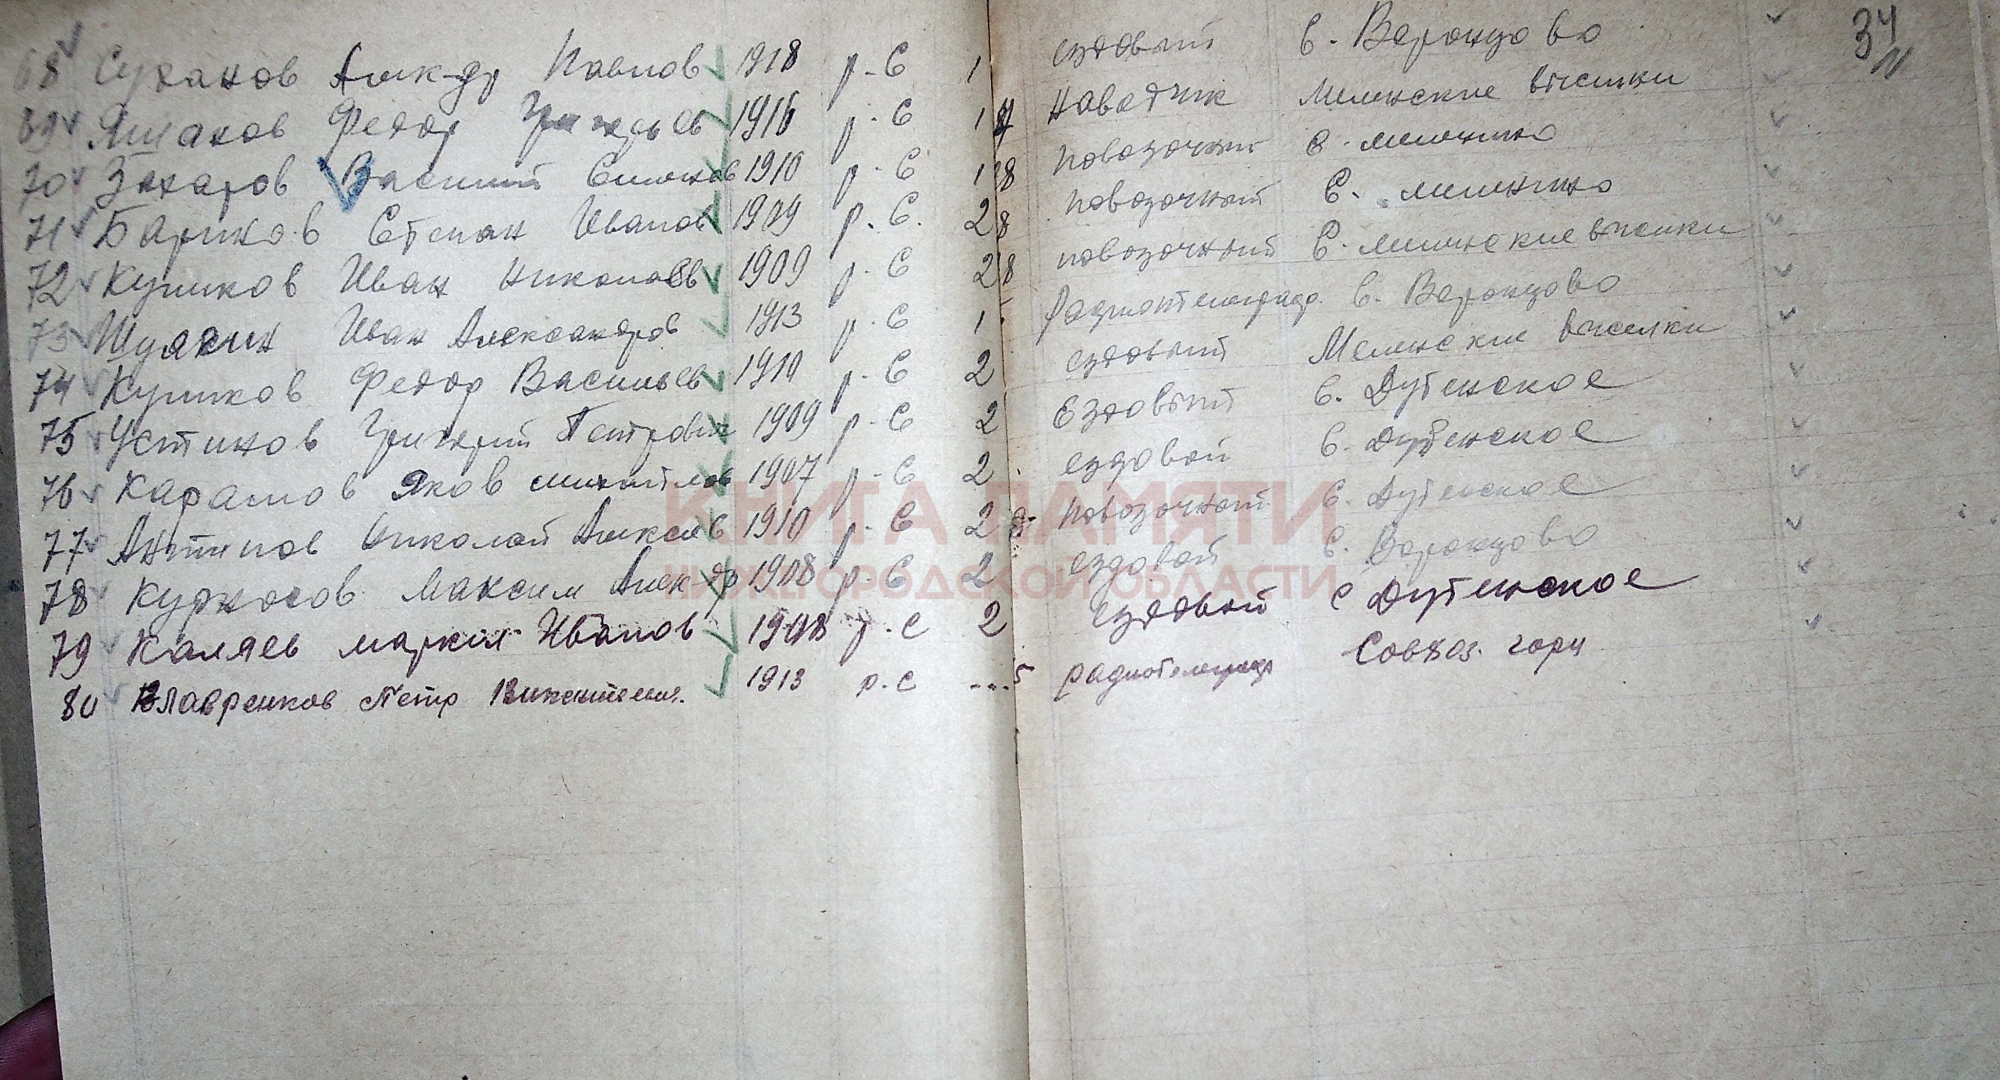 34
68 Суханов Алек-др Павлов 1918 р-С 1 ездовый с. Воронцово
69 Ямаков Федор Григорьев 1916 р-С наводчик Мешинские выселки
70 Захаров Василий 1910 р-С 8 повозочный с.
71 Бариков Степан Иванов 1909 р.С. 2 8 повозочный с.
72 Куликов Иван Николаев 1909 р-С 2 8 повозочный с. выселки
73 Шулягин Иван Александров 1913 р-С 1 радиотелеграф. с. Воронцово
74 Куликов Федор Васильев 1910 р-С 2 ездовый выселки
75 Устинов Григорий Петрович 1909 р-С 2 Ездовый с. Дубенское
76 Карамов Яков михайлов 1907 р-С 2 ездовой с. Дубенское
77 Антипов Николай Алексеев 1910 р-С 2 повозочный с. Дубенское
78 Курносов Максим Алек-др 1908 р-С 2 ездовой с. Воронцово
79 Каляев Иванов 1908 р-с 2 ездовый с Дубенское
80 Лавренков Петр 1913 р.с 5 радиотелеграф Совхоз.
КНИГА ПАМЯТИ
НИЖЕГОРОДСКОЙ ОБЛАСТИ